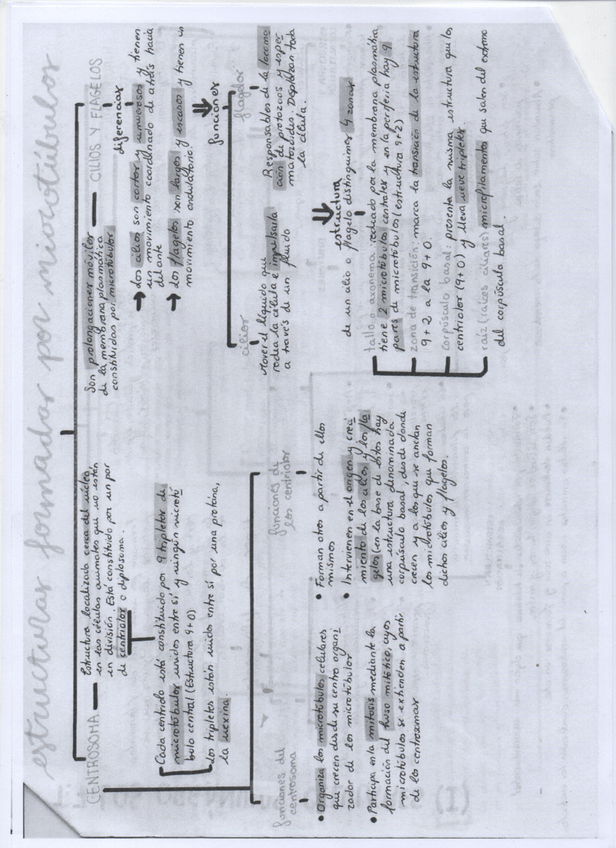 estructuras formadas por microtúbulos
CENTROSOMA
Estructura localizada cerca del núcleo
en las células animales que no estén
en división. Está constituido por un par
de centriolos o diplosoma.
Cada centriolo está constituido por 9 tripletes de
microtúbulos unidos entre sí y ningún microtú
bulo central (Estructura 9+0)
Los tripletes están unidos entre sí por una proteína,
la nexina.
funciones del
centrosoma
• Organiza los microtúbulos celulares
que crecen desde su centro organi
zador de los microtúbulos
• Participa en la mitosis mediante la
formación del huso mitótico, cuyos
microtúbulos se extienden a partir
de los centrosomas
funciones de
los centriolos
• Forman otros a partir de ellos
mismos
• Intervienen en el origen y creci
miento de los cilios y los fla
gelos (en la base de estos hay
una estructura denominada
corpúsculo basal, desde donde
crecen y a los que se anclan
los microtúbulos que forman
dichos cilios y flagelos.
CILIOS Y FLAGELOS
Son prolongaciones móviles
de la membrana plasmática
constituidas por microtúbulos
diferencias
→ Los cilios son cortos y numerosos y tienen
un movimiento coordinado de atrás hacia
delante
→ Los flagelos son largos y escasos y tienen un
movimiento ondulatorio
funciones
cilios
Mover el líquido que
rodea la célula e impulsarla
a través de un fluido
flagelos
Responsables de la locomo
ción de protozoos y esper
matozoides. Desplazan toda
la célula.
estructura
de un cilio o flagelo distinguimos 4 zonas
tallo o axonema: rodeado por la membrana plasmática,
tiene 2 microtúbulos centrales y en la periferia hay 9
pares de microtúbulos (estructura 9+2)
zona de transición: marca la transición de la estructura
9+2 a la 9+0.
corpúsculo basal: presenta la misma estructura que los
centriolos (9+0) y lleva nueve tripletes.
raíz (raíces ciliares) microfilamentos que salen del extremo
del corpúsculo basal.